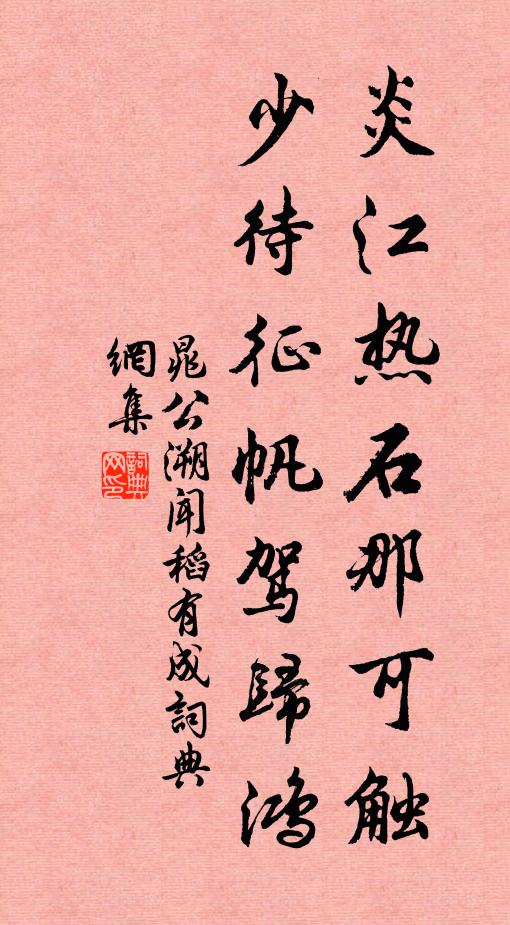 炎江热石那可触
少待征帆驾歸鸿
晁公溯闻稻有成詞典
網集
詞典網印